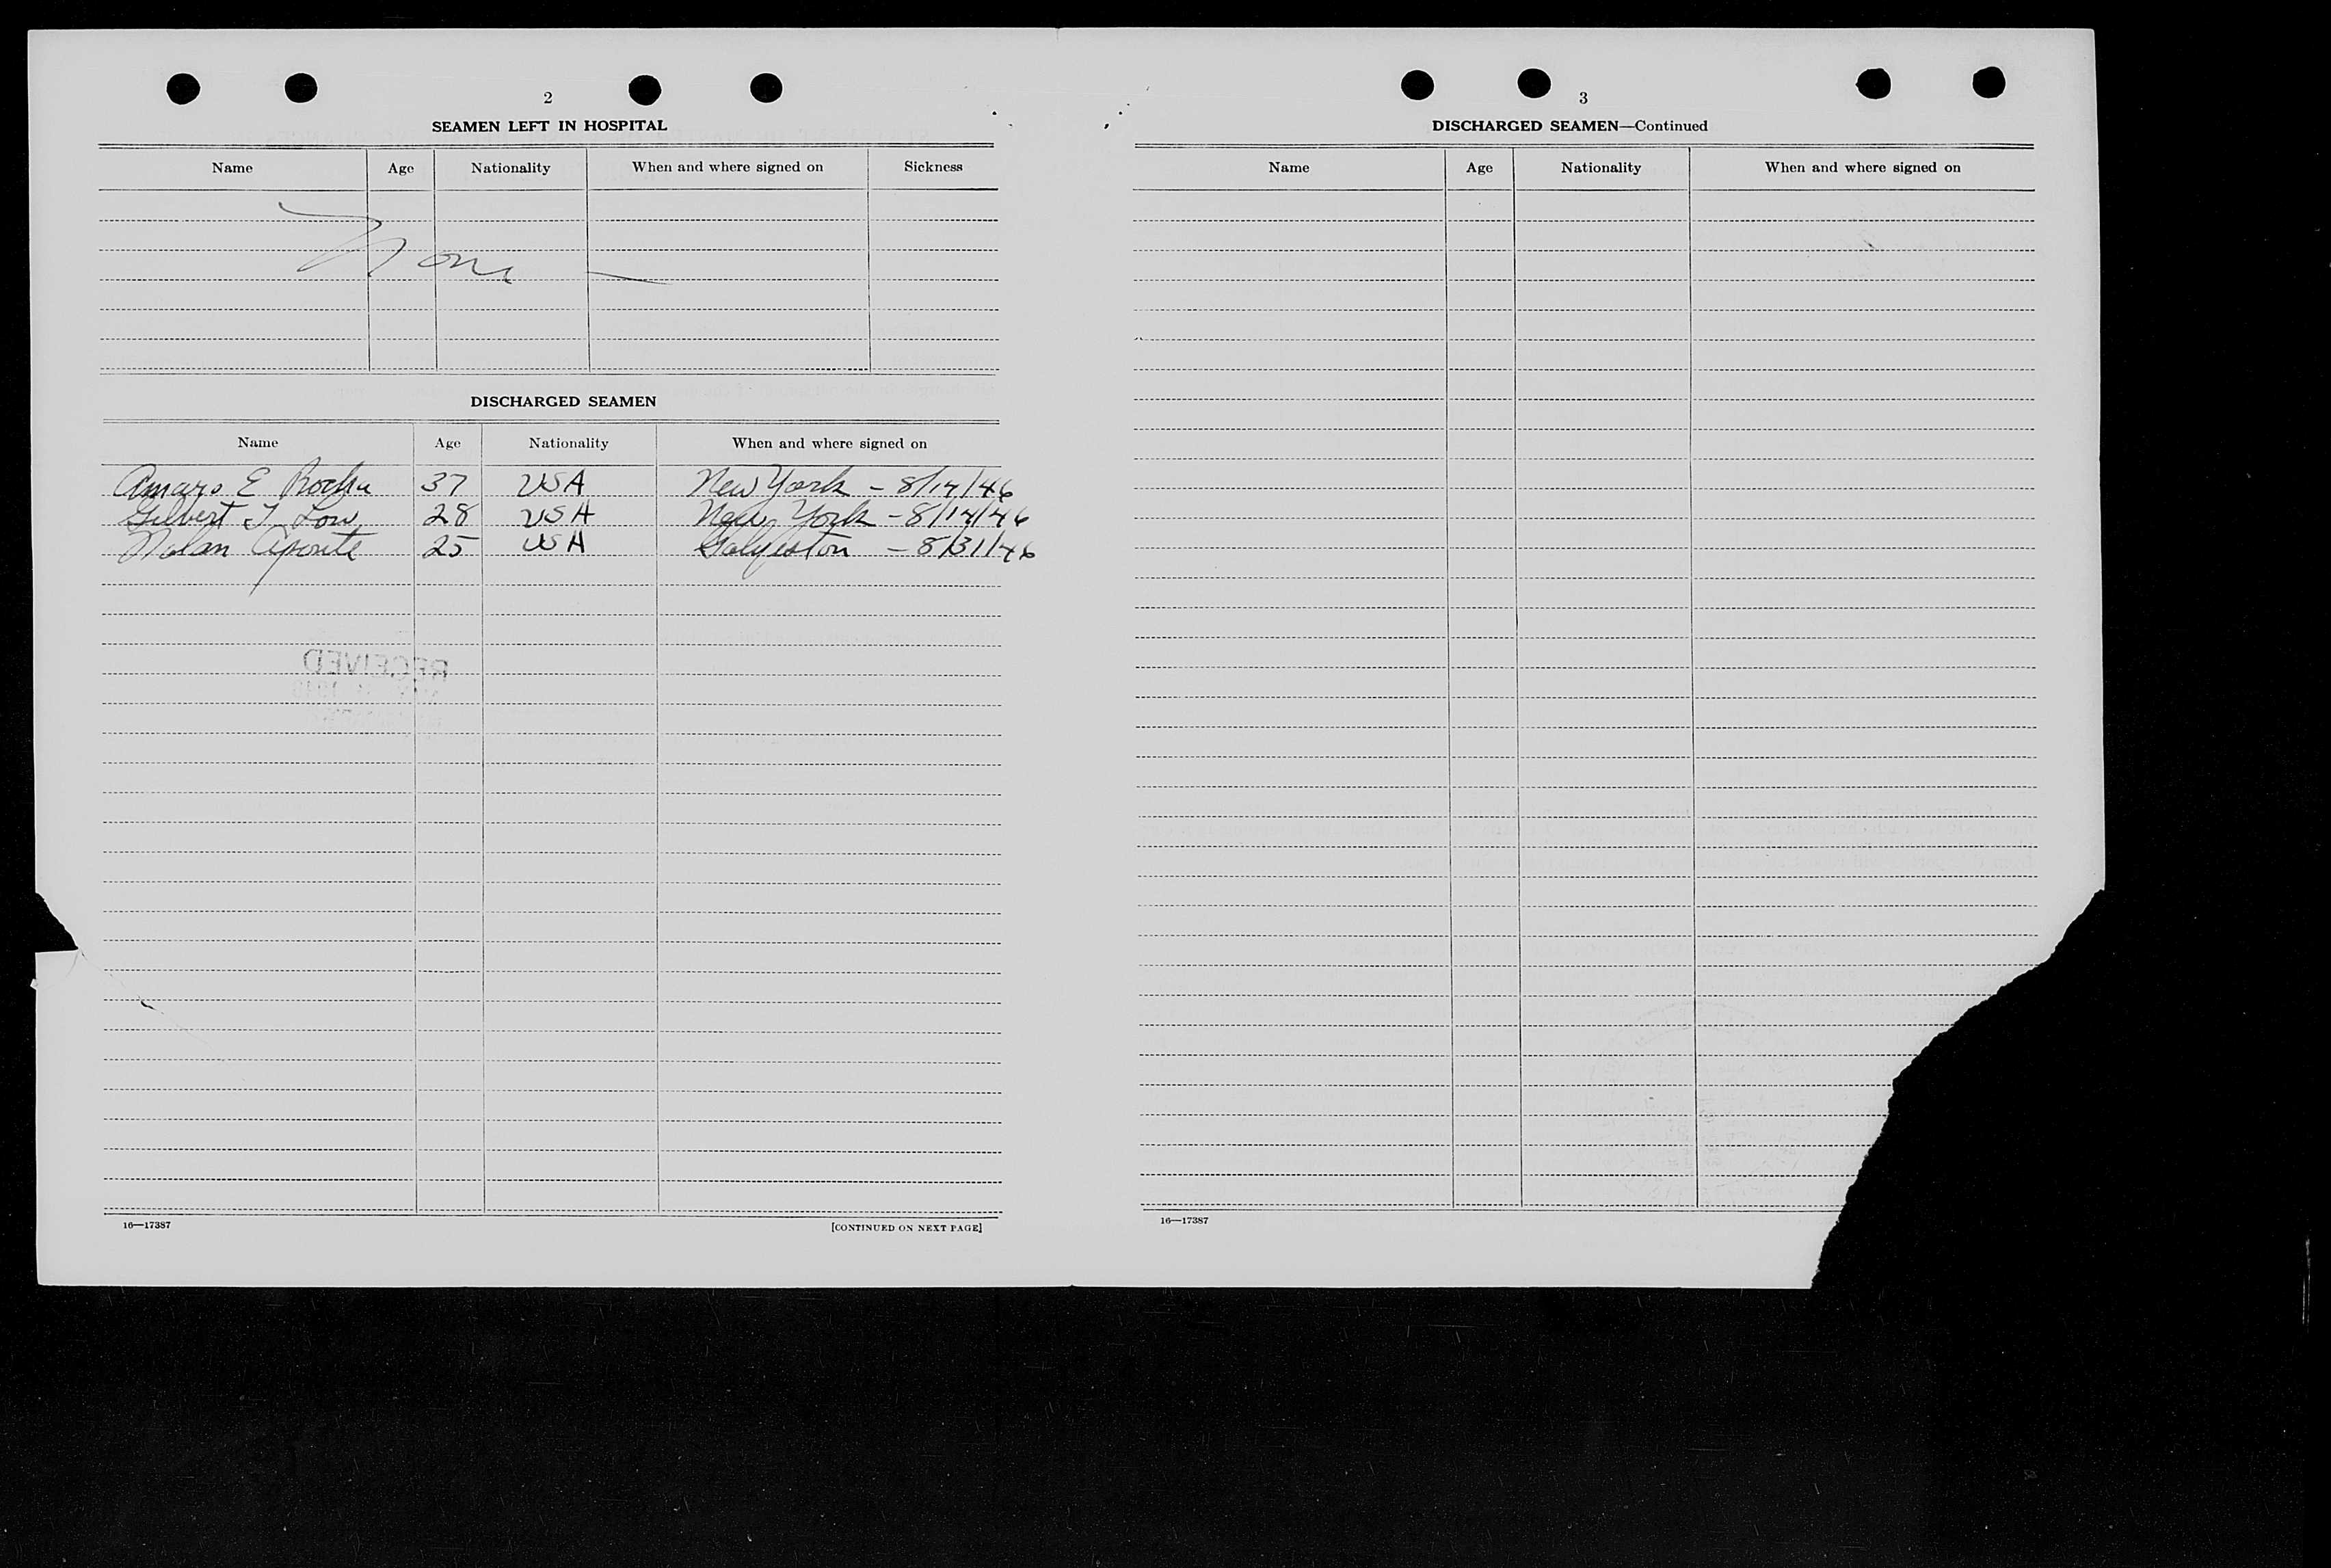 2
SEAMEN LEFT IN HOSPITAL
Name Age Nationality When and where signed on Sickness
None —
DISCHARGED SEAMEN
Name Age Nationality When and where signed on
Amaro E Rocha 37 USA New York - 8/14/46
Gilbert T Low 28 USA New York - 8/14/46
Nolan Aponte 25 USA Galveston - 8/31/46
RECEIVED
16—17387 [CONTINUED ON NEXT PAGE]
3
DISCHARGED SEAMEN—Continued
Name Age Nationality When and where signed on
16—17387